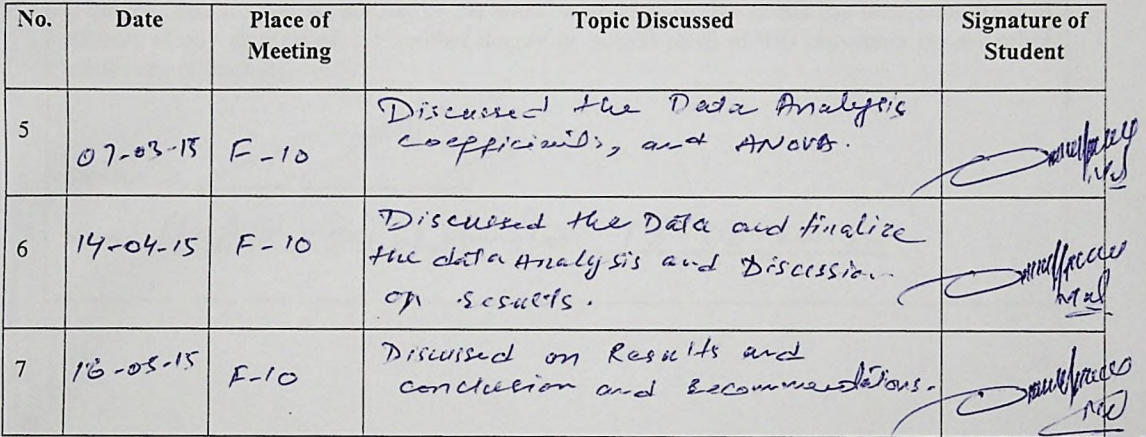 No. Date Place of Meeting Topic Discussed Signature of Student
5 07-03-15 F-10 Discussed the Data Analysis
coefficients, and ANOVA.
6 14-04-15 F-10 Discussed the Data and finalize
the data Analysis and Discession
on results.
7 F-10 Discussed on Results and
conclusion and Recommendations.